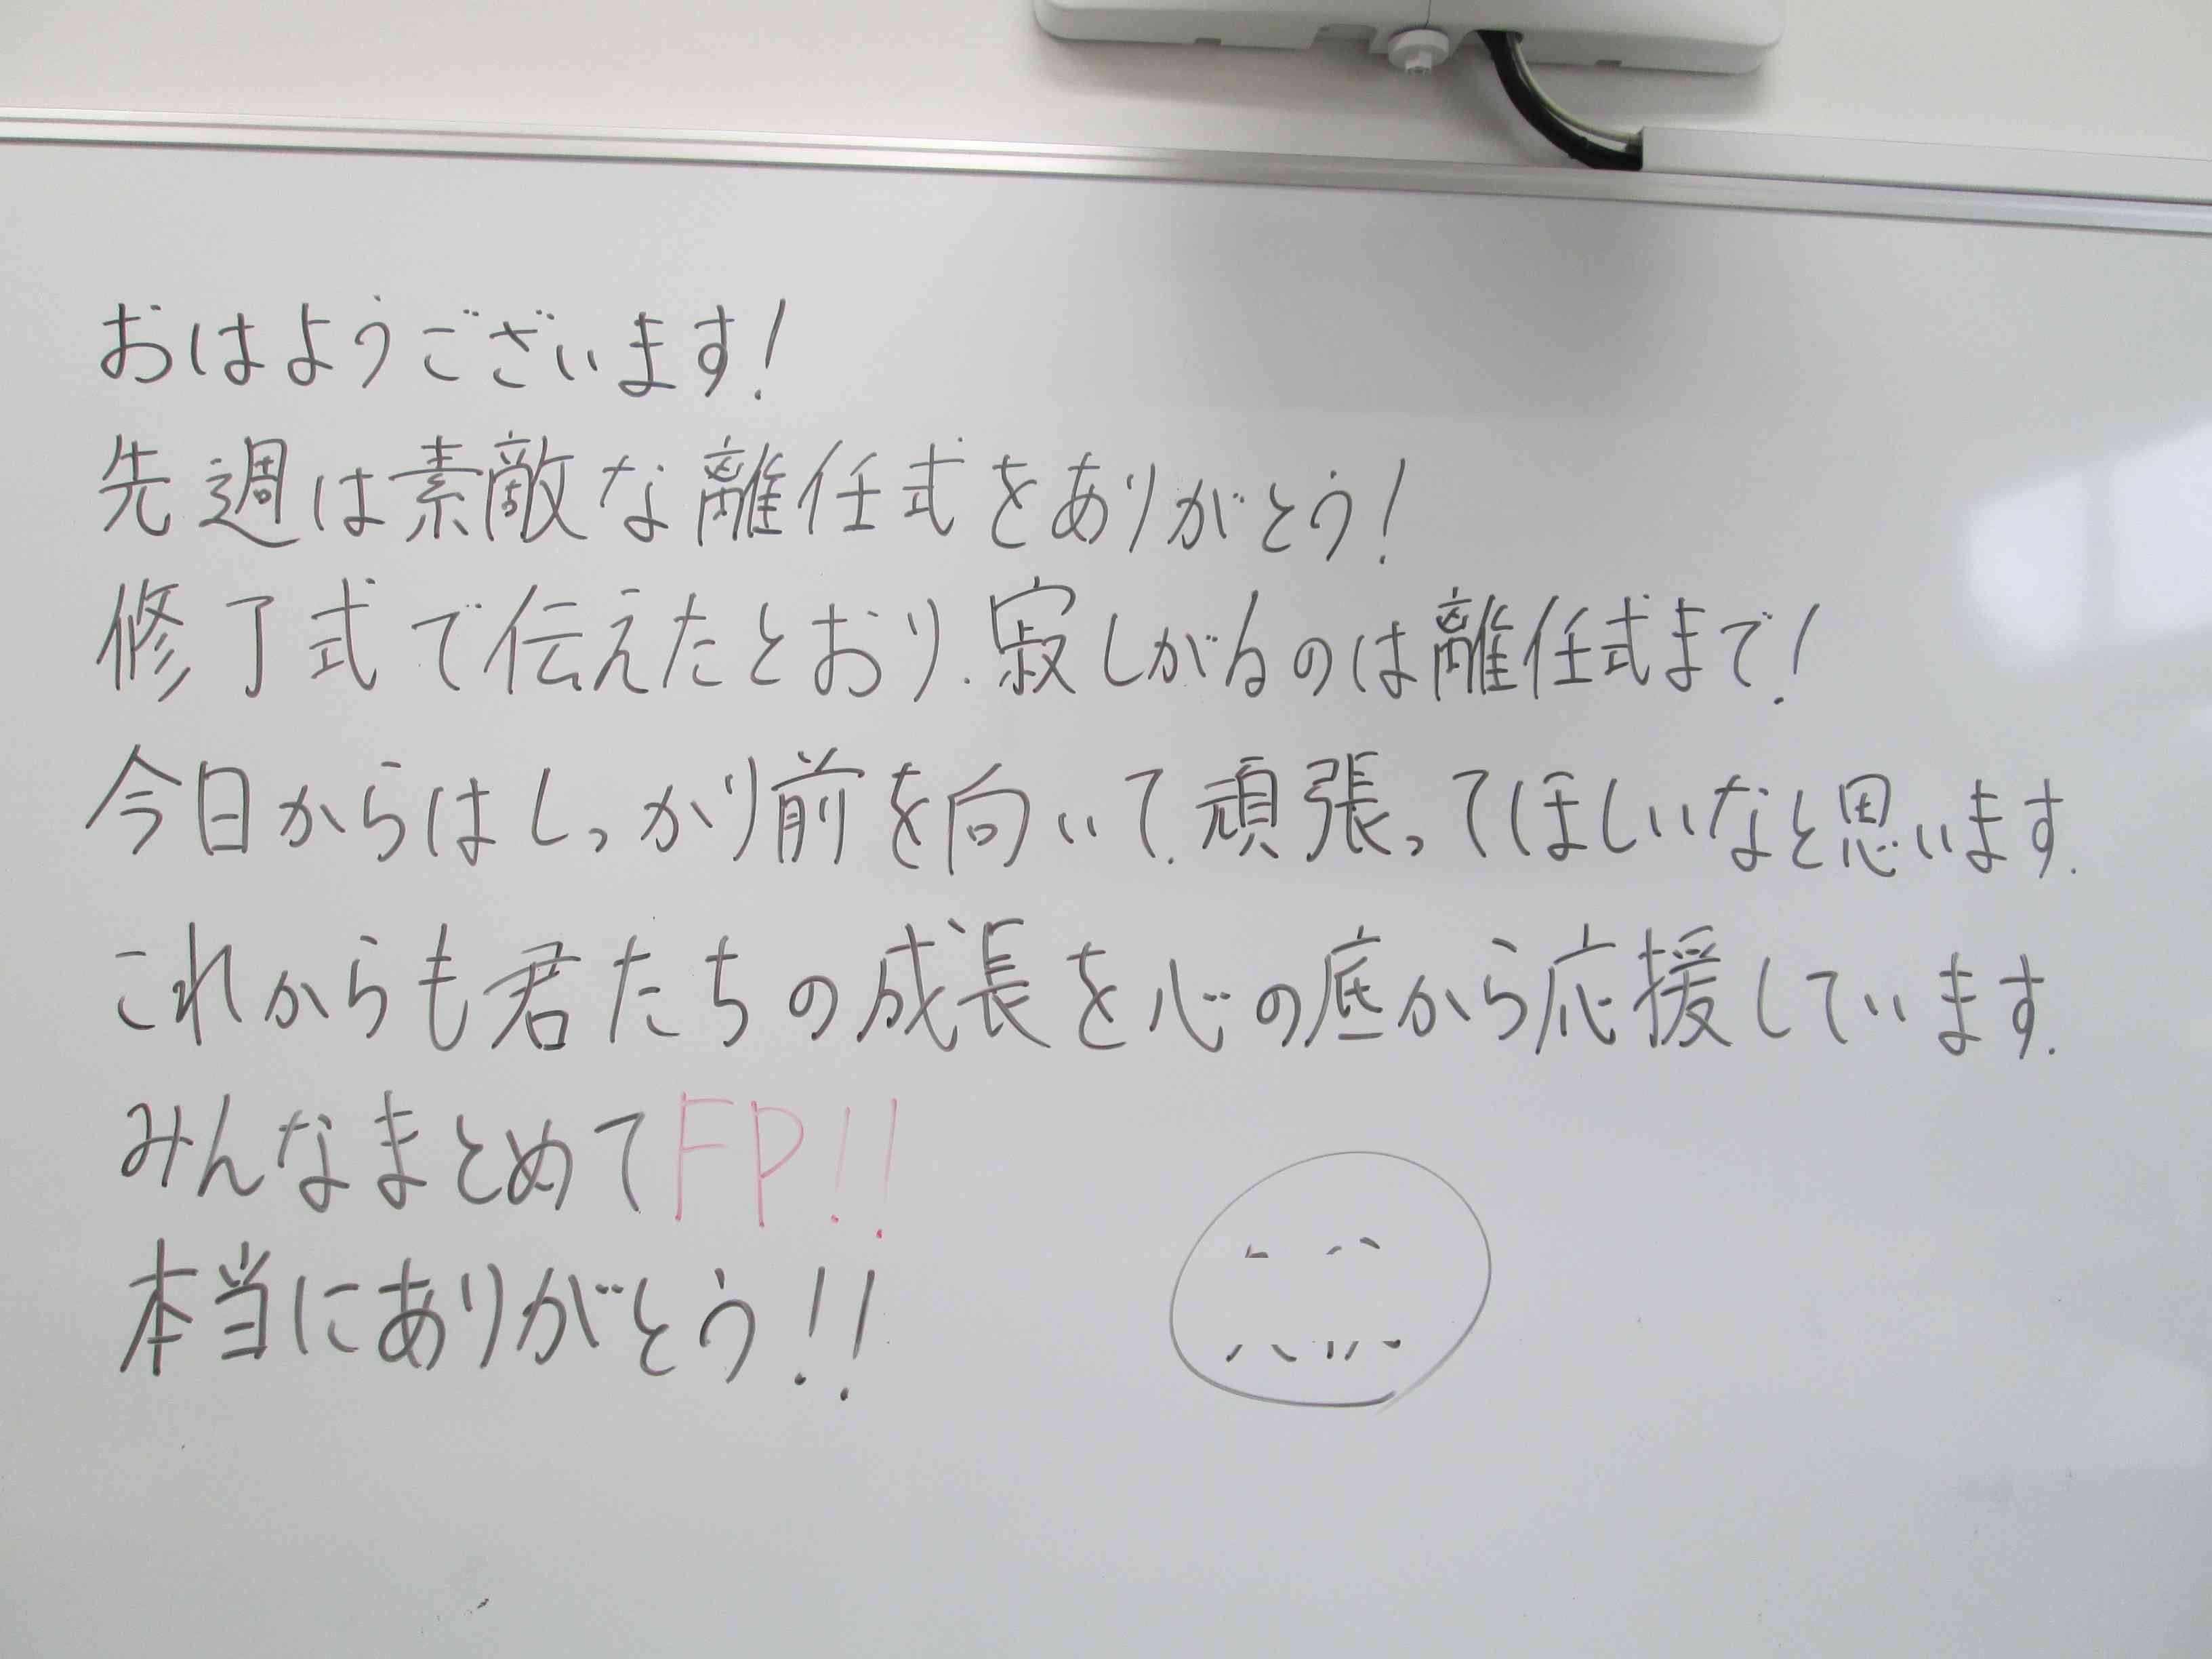 おはようございます!
先週は素敵な離任式をありがとう!
修了式で伝えたとおり.寂しがるのは離任式まで!
今日からはしっかり前を向いて.頑張ってほしいなと思います.
これからも君たちの成長を心の底から応援しています.
みんなまとめてFP!!
本当にありがとう!!